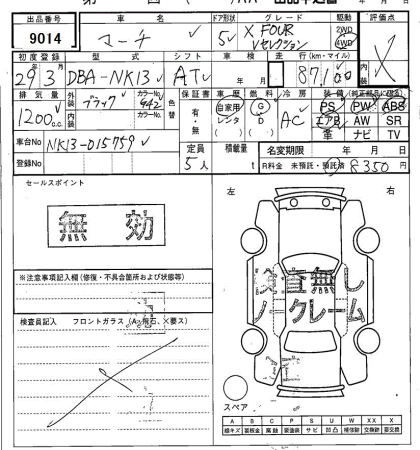 出品番号 車名 ドア形状 グレード 駆動 評価点
9014 マーチ 5 X FOUR Vセレクション 2WD 4WD X
初度登録 型式 シフト 車検 走行(km・マイル) 内装
29年3月 DBA-NK13 AT 年 月 87,100
排気量 外装 カラーNo. 色替 保証書 車歴 燃料 冷房 装備(純正部品に限る)
1200c.c. ブラック 642 有・無 自家用 レンタ G D AC PS PW ABS
内装 カラーNo. エアB AW SR
革 ナビ TV
車台No. NK13-015759 定員 積載量 名変期限 年 月 日
登録No. 5人 t R料金 未預託・預託済 8350円
セールスポイント 左 右
無効
※注意事項記入欄(修復・不具合箇所および状態等)
検査無し
ノークレーム
検査員記入 フロントガラス(A>飛石、X要ス)
スペア
A B C P S U W X XX